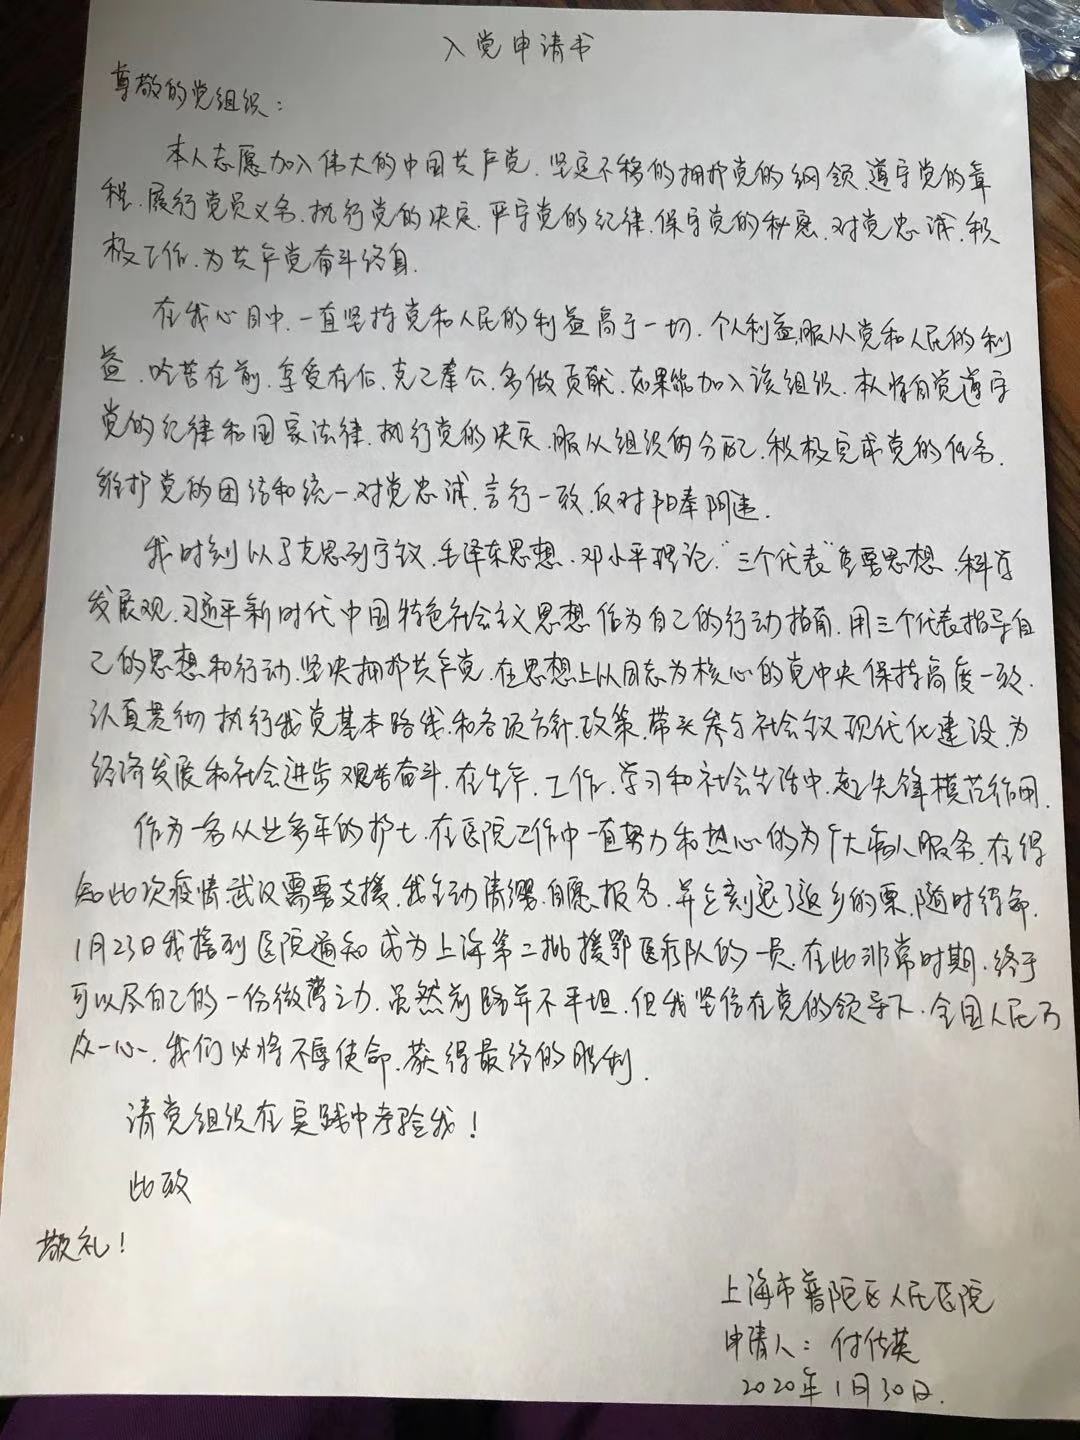 入党申请书
尊敬的党组织：
本人志愿加入伟大的中国共产党，坚定不移的拥护党的纲领，遵守党的章
程，履行党员义务，执行党的决定，严守党的纪律，保守党的秘密，对党忠诚，积
极工作，为共产党奋斗终身．
在我心目中，一直坚持党和人民的利益高于一切，个人利益服从党和人民的利
益，吃苦在前，享受在后，克己奉公，多做贡献，如果能加入该组织，本人将自觉遵守
党的纪律和国家法律，执行党的决定，服从组织的分配，积极完成党的任务．
维护党的团结和统一，对党忠诚，言行一致，反对阳奉阴违．
我时刻以马克思列宁主义、毛泽东思想、邓小平理论、“三个代表”重要思想、科学
发展观、习近平新时代中国特色社会主义思想作为自己的行动指南，用三个代表指导自
己的思想和行动，坚决拥护共产党，在思想上以同志为核心的党中央保持高度一致．
认真贯彻执行我党基本路线和各项方针，政策，带头参与社会主义现代化建设，为
经济发展和社会进步艰苦奋斗，在生产、工作、学习和社会生活中，起先锋模范作用．
作为一名从业多年的护士，在医院工作中一直努力和热心的为广大病人服务，在得
知此次疫情武汉需要支援，我主动请缨，自愿报名，并立刻退了返乡的票，随时待命．
1月23日我接到医院通知成为上海第二批援鄂医疗队的一员，在此非常时期，终于
可以尽自己的一份微薄之力，虽然前路并不平坦，但我坚信在党的领导下，全国人民万
众一心，我们必将不辱使命，获得最终的胜利．
请党组织在实践中考验我！
此致
敬礼！
上海市普陀区人民医院
申请人：付佐英
2020年1月30日．